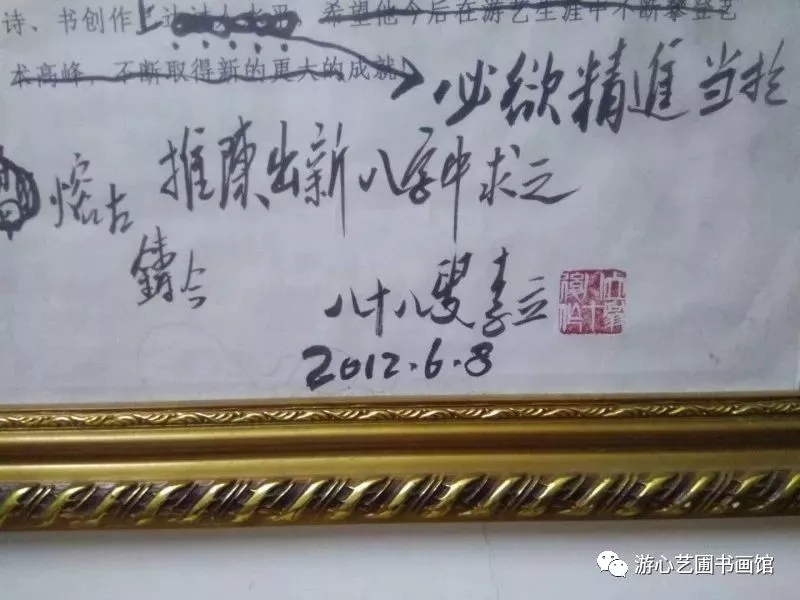 诗、书创作上达 希望他今后在游艺生涯中不断攀登艺
术高峰，不断取得新的更大的成就
必欲精進当於
熔古 推陳出新八字中求之
鑄今
八十八叟 立
2012.6.8
游心艺圃书画馆